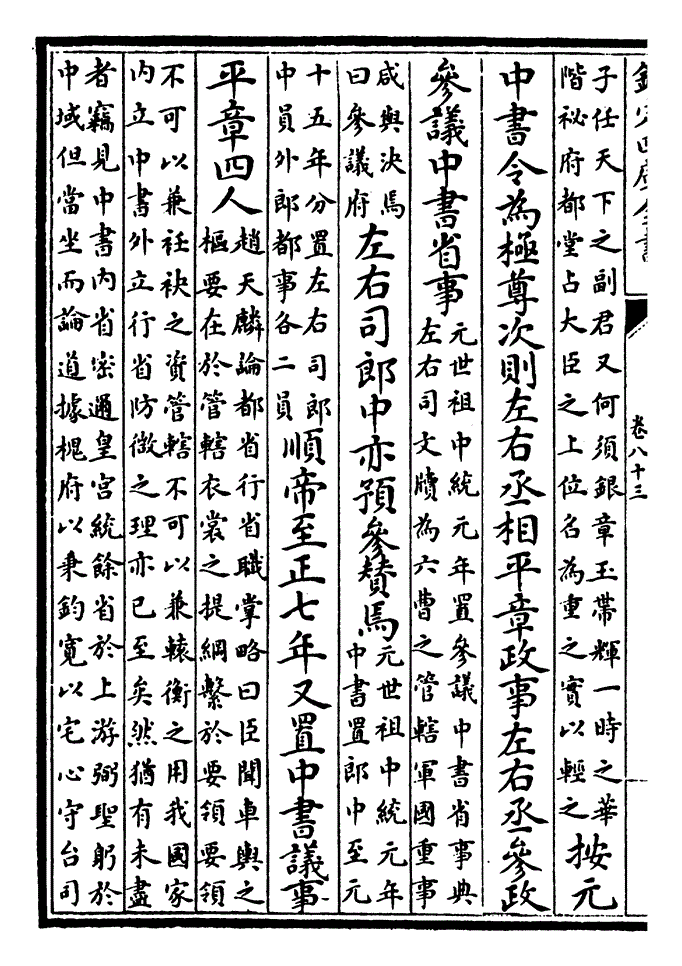 欽定四庫全書
卷八十三
子任天下之副君又何須銀章玉帶輝一時之華
階祕府都堂占大臣之上位名為重之實以輕之
按元
中書令為極尊次則左右丞相平章政事左右丞參政
參議中書省事
元世祖中統元年置參議中書省事典
左右司文牘為六曹之管轄軍國重事
咸與決焉
曰參議府
左右司郎中亦預參賛焉
元世祖中統元年
中書置郎中至元
十五年分置左右司郎
中員外郎都事各二員
順帝至正七年又置中書議事
平章四人
趙天麟論都省行省職掌略曰臣聞車輿之
樞要在於管轄衣裳之提綱繫於要領要領
不可以兼衽袂之資管轄不可以兼轅衡之用我國家
內立中書外立行省防微之理亦已至矣然猶有未盡
者竊見中書內省密邇皇宮統餘省於上游弼聖躬於
中域但當坐而論道據槐府以秉鈞寬以宅心守台司